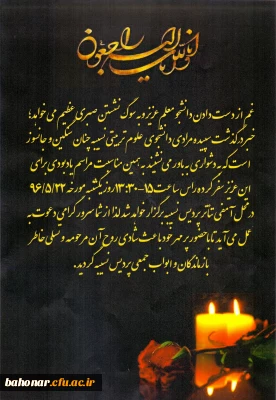 انا لله و انا الیه راجعون
غم از دست دادن دانشجو معلم عزیز و به سوگ نشستن صبری عظیم می خواهد؛
خبر درگذشت سپیده مرادی دانشجوی علوم تربیتی نسیبه چنان سنگین و جانسوز
است که به دشواری به باور می نشیند به همین مناسبت مراسم یادبودی برای
این عزیز سفر کرده راس ساعت ۱۵-۱۳:۳۰ روز یکشنبه مورخه ۹۶/۵/۲۲
در محل آمفی تئاتر پردیس نسیبه برگزار خواهد شد لذا از شما سرور گرامی دعوت به
عمل می آید تا با حضور پر مهر خود باعث شادی روح آن مرحومه و تسلی خاطر
بازماندگان و ابواب جمعی پردیس نسیبه گردید.
bahonar.cfu.ac.ir